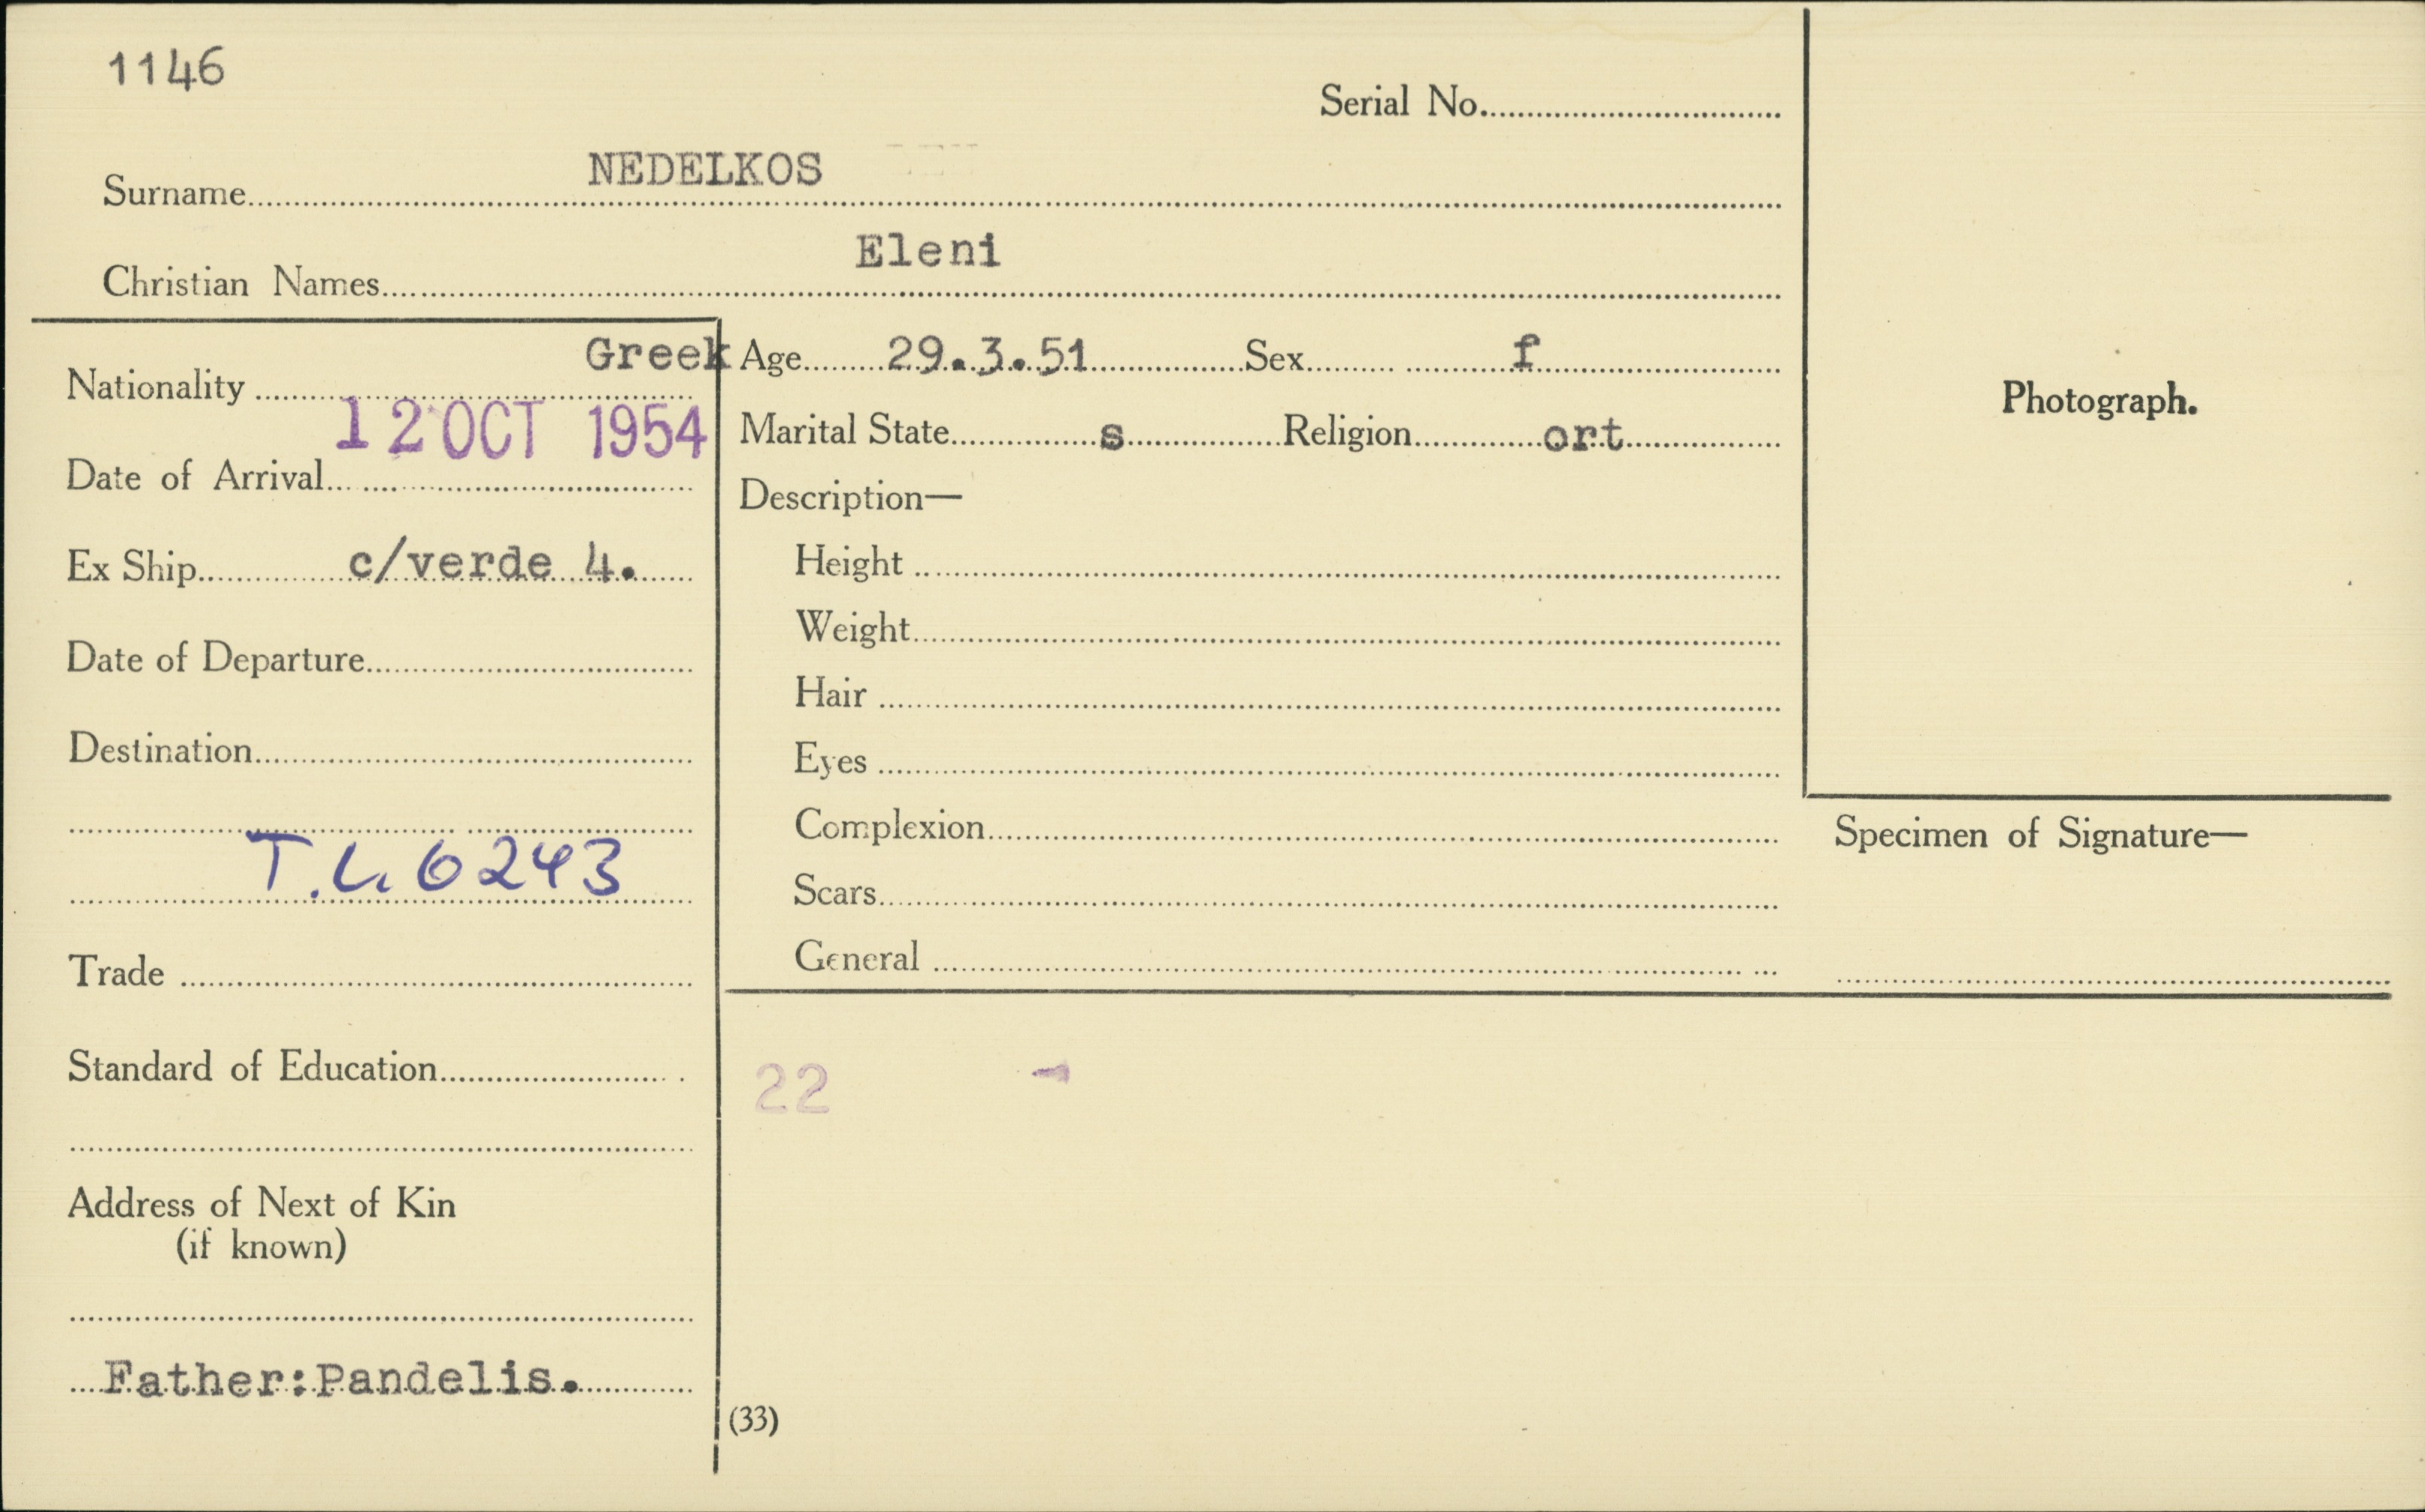 1146
Serial No.
Surname NEDELKOS
Christian Names Eleni
Nationality Greek
Date of Arrival 12 OCT 1954
Ex Ship c/verde 4.
Date of Departure
Destination
T.L. 6243
Trade
Standard of Education
Address of Next of Kin
(if known)
Father:Pandelis.
Age 29.3.51 Sex f
Marital State s Religion ort
Description—
Height
Weight
Hair
Eyes
Complexion
Scars
General
22
(33)
Photograph.
Specimen of Signature—